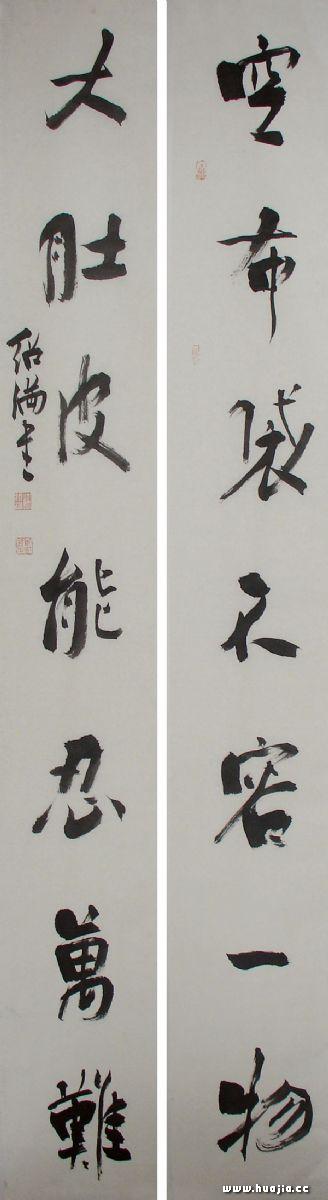 空布袋不容一物
大肚皮能忍萬難
绍滿書
www.huajia.cc